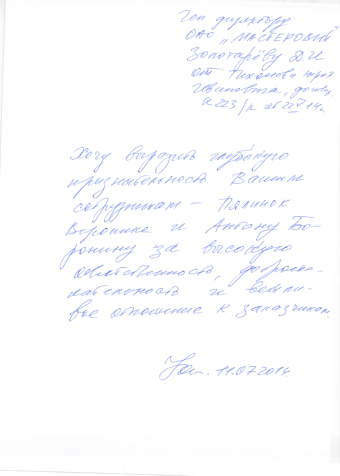 Ген директору
ОАО "МАСТЕРОВИЙ"
Золотарёву Д.И
от Тихонова Юрия
Ивановича, догов.
К 223/к от 22 V 14г.
Хочу выразить глубокую
признательность Вашим
сотрудникам - Палинок
Веронике и Антону Бо-
ронину за высокую
ответственность, доброже-
лательность и вежли-
вое отношение к заказчикам.
11.07.2014.